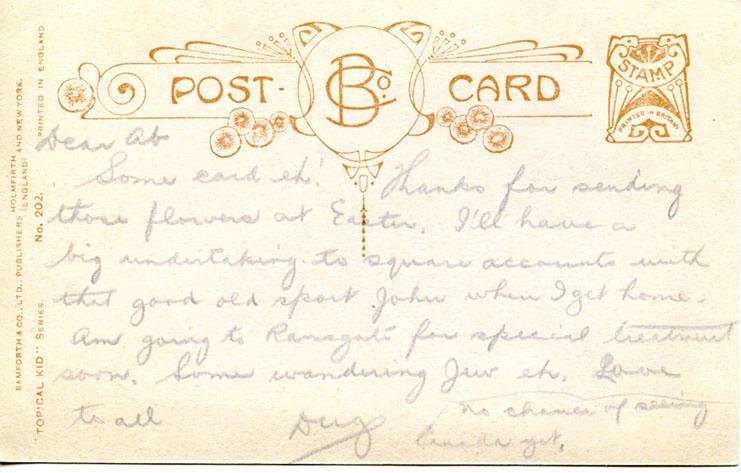 POST-
BCo.
CARD
STAMP
PRINTED IN BRITAIN
BAMFORTH & CO., LTD., PUBLISHERS (ENGLAND) AND NEW YORK.
HOLMFIRTH
"TOPICAL KID" SERIES. No. 202. PRINTED IN ENGLAND
Dear Ab
Some card eh! Thanks for sending
those flowers at Easter. I'll have a
big undertaking to square accounts with
that good old sport John when I get home.
Am going to Ramsgate for special treatment
soon. Some wandering Jew eh. Love
to all
Dug
No chance of seeing
Canada yet.